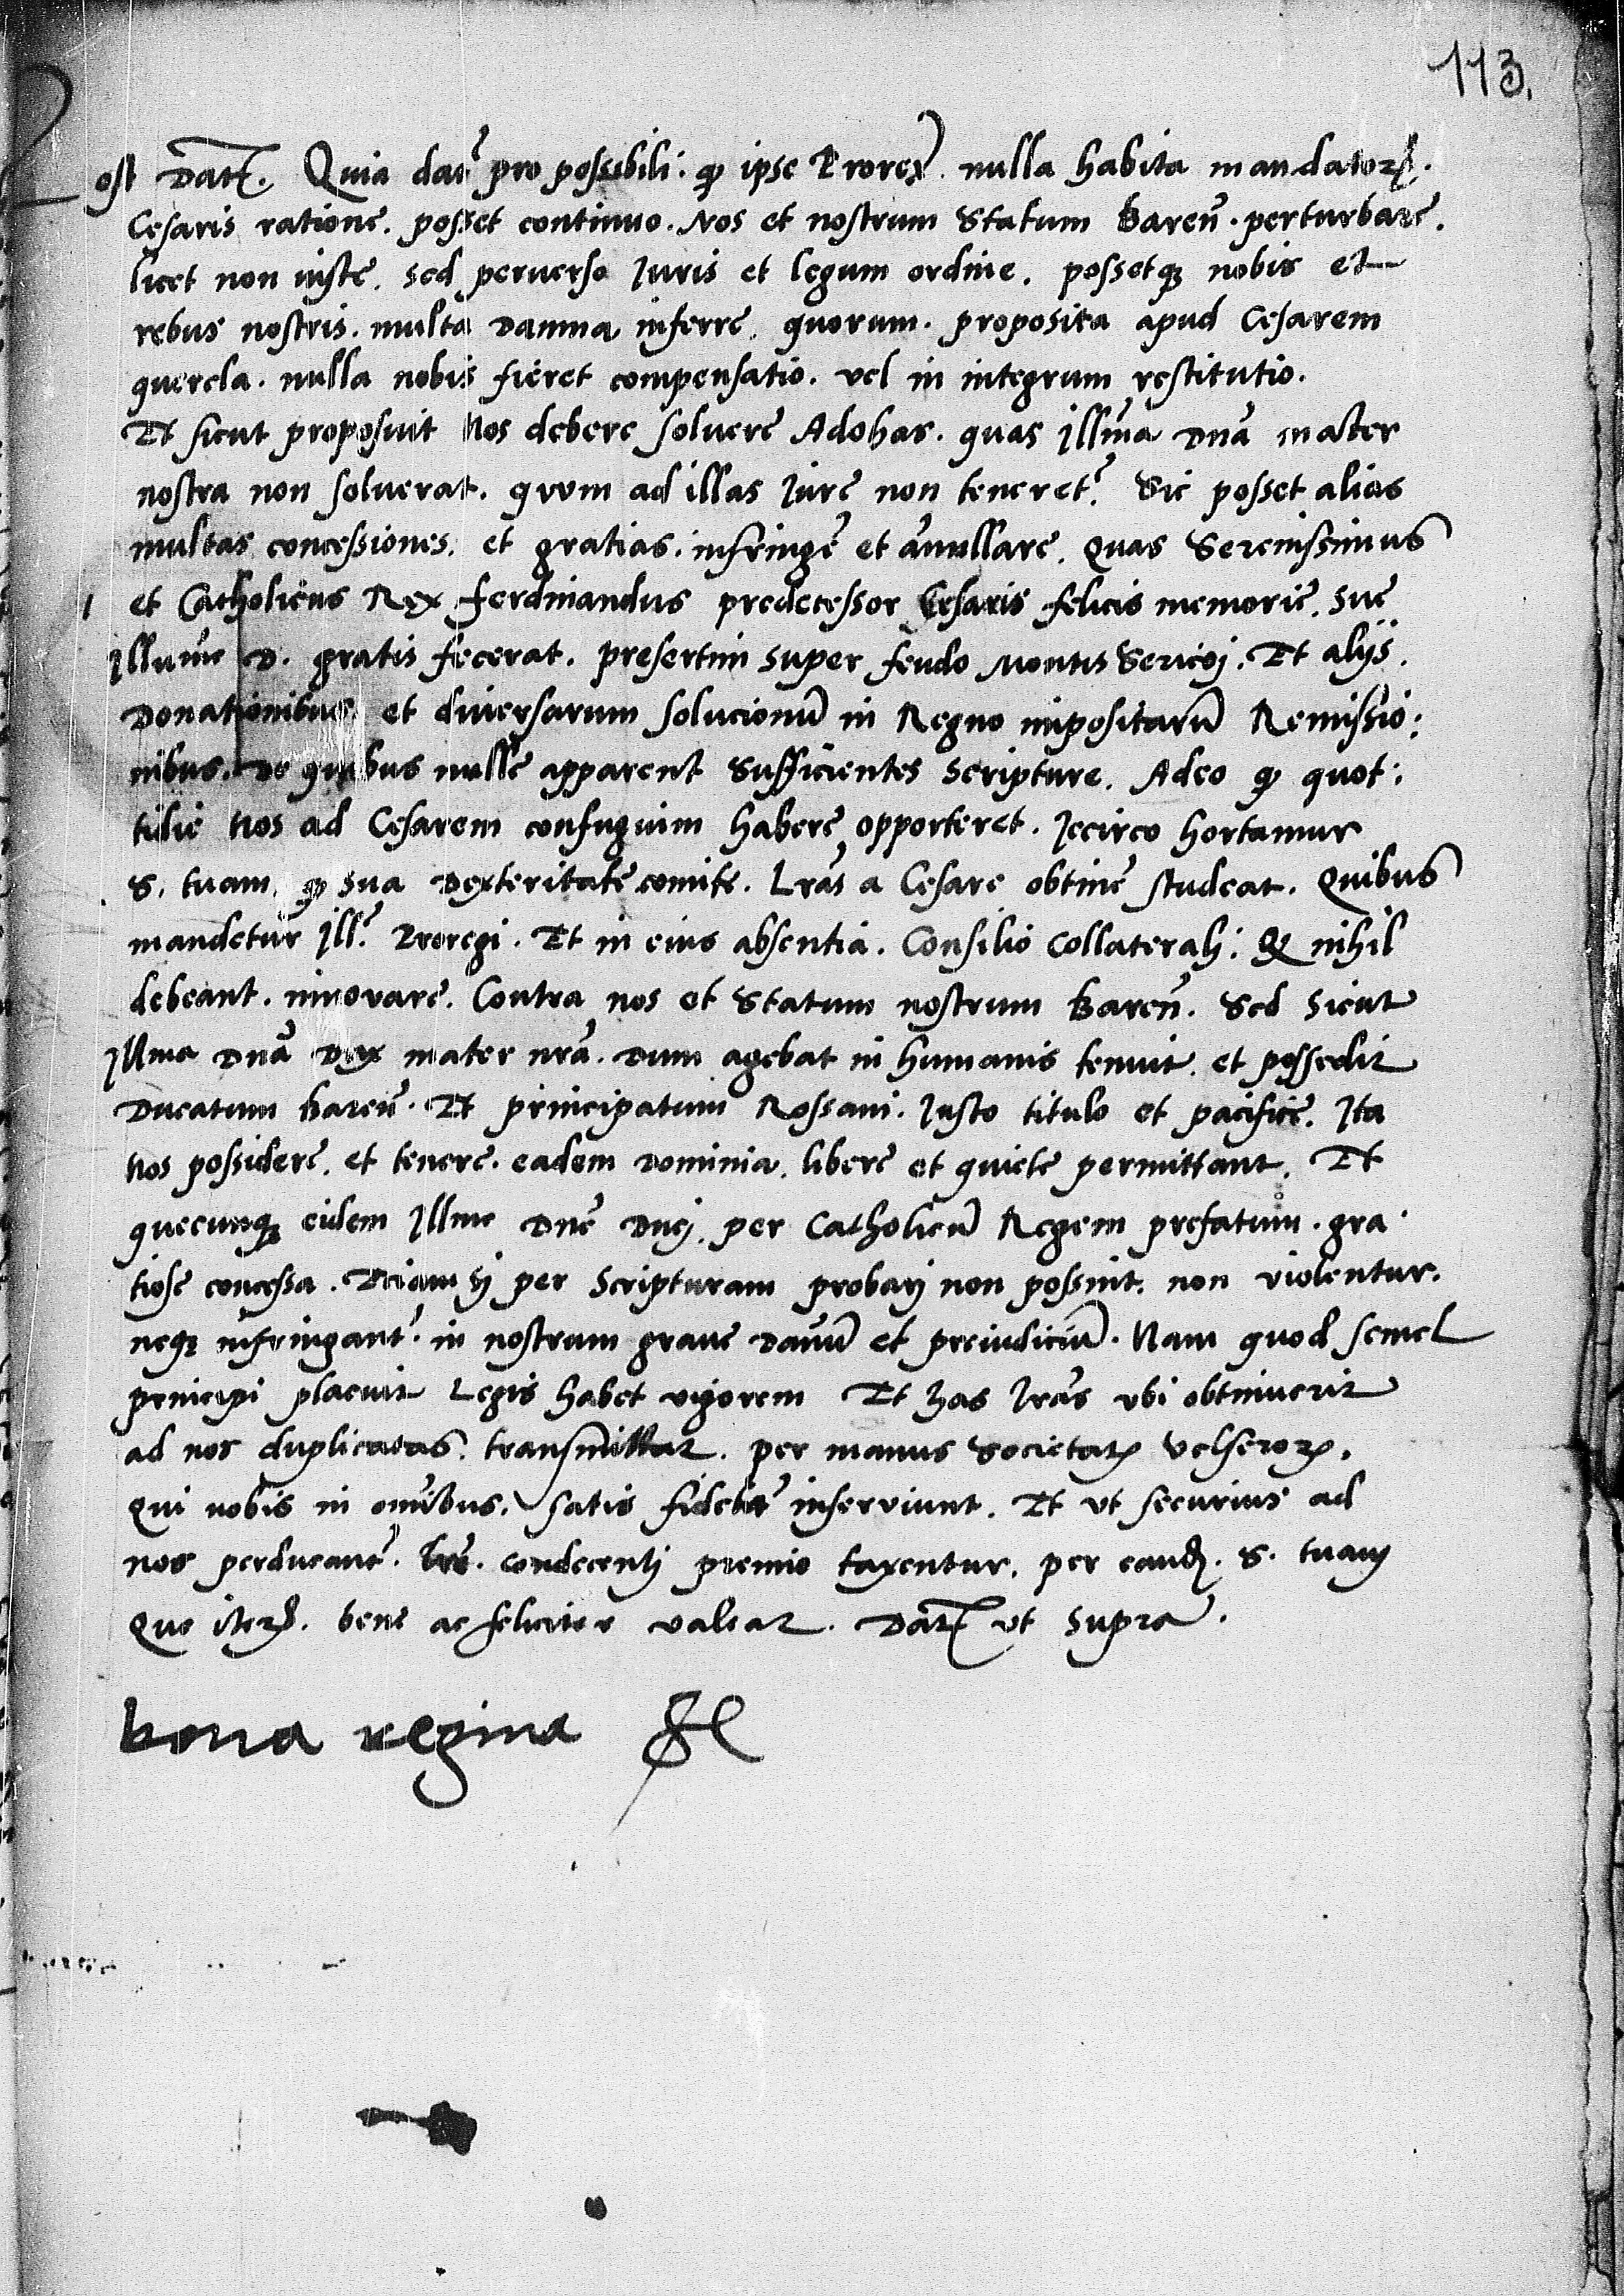 113.
Post Datũ. Quia dat̃ pro possibili. ꝙ ipse Prorex. nulla habita mandatorꝝ.
Cesaris ratione. posset continuo. Nos et nostrum Statum Bareñ. perturbare.
licet non iuste. sed perverso Juris et legum ordine. possetqꝫ nobis et
rebus nostris. multa Damna inferre. quorum. proposita apud Cesarem
querela. nulla nobis fieret compensatio. vel in integrum restitutio.
Et sicut proposuit Nos debere soluere Adohas. quas Jllm̃a Dnã mater
nostra non soluerat. quum ad illas Jure non teneret̃. Sic posset alias
multas concessiones. et gratias. infringẽ et ãnullare. Quas Serenissimus
et Catholicus Rex Ferdinandus predecessor Cesaris felicis memorie. sue
Jllm̃e D. gratis fecerat. presertim super feudo Montis Sericoj. Et alijs.
Donationibus et diversarum solucionũ in Regno impositarũ Remissio:
nibus. De quibus nullẽ apparent Sufficientes Scripture. Adeo ꝙ quot:
tidie Nos ad Cesarem confugium habere opporteret. Jccirco hortamur
S. tuam. ꝙ sua Dexteritate comite. Lrãs a Cesare obtinẽ studeat. Quibus
mandetur Jll̃. Proregi. Et in eius absentia. Consilio Collateralj. Qꝫ nihil
debeant. innovare. Contra nos et Statum nostrum Bareñ. Sed sicut
Jllma Dnã Dux mater nrã. Dum agebat in humanis tenuit. et possedit
Ducatum Bareñ. Et principatum Rossani. Justo titulo et pacifice. Jta
Nos possidere. et tenere. eadem Dominia. libere et quiete permittant. Et
quecunqꝫ eidem Jllme Dnẽ Ducj. per Catholicũ Regem prefatum. gra
tiose concessa. Eciam sj per Scripturam probarj non possint. non violentur.
neqꝫ infringant̃. in nostrum grave Damnũ et preiudiciũ. Nam quod semel
principi placuit Legis habet vigorem Et has lrãs ubi obtinuerit
ad nos duplicatas. transmittat. per manus Societatꝭ Velserorꝝ.
Qui nobis in omñibus. satis fidelit̃ inserviunt. Et ut securius ad
nos perducant̃. lrẽ. condecentj premio taxentur. per eandꝫ. S. tuam
Que iterꝝ. bene ac feliciter valeat. Datũ ut supra.
bona regina